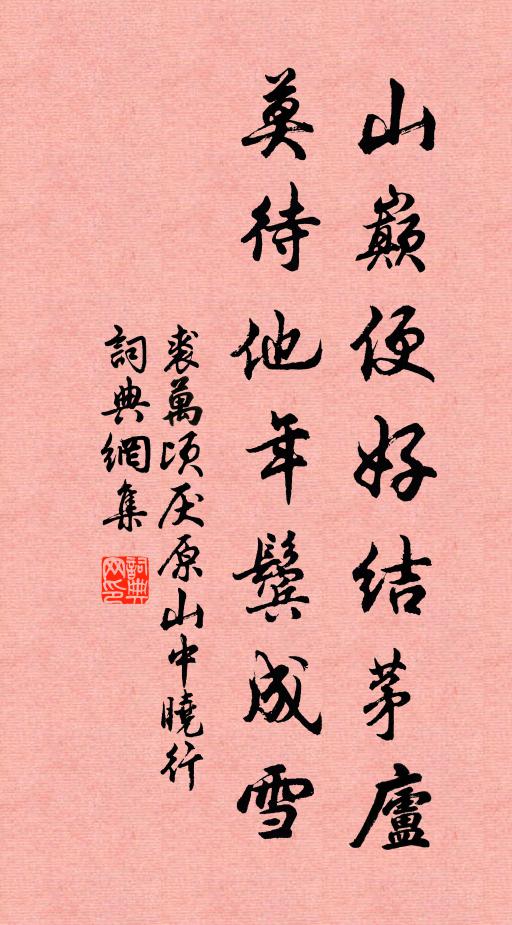 山巔便好結茅廬
莫待他年鬢成雪
裘萬頃厌原山中曉行
詞典網集
詞典网印